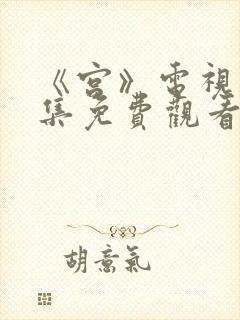 《宮》電視
集免費觀看
胡意氣